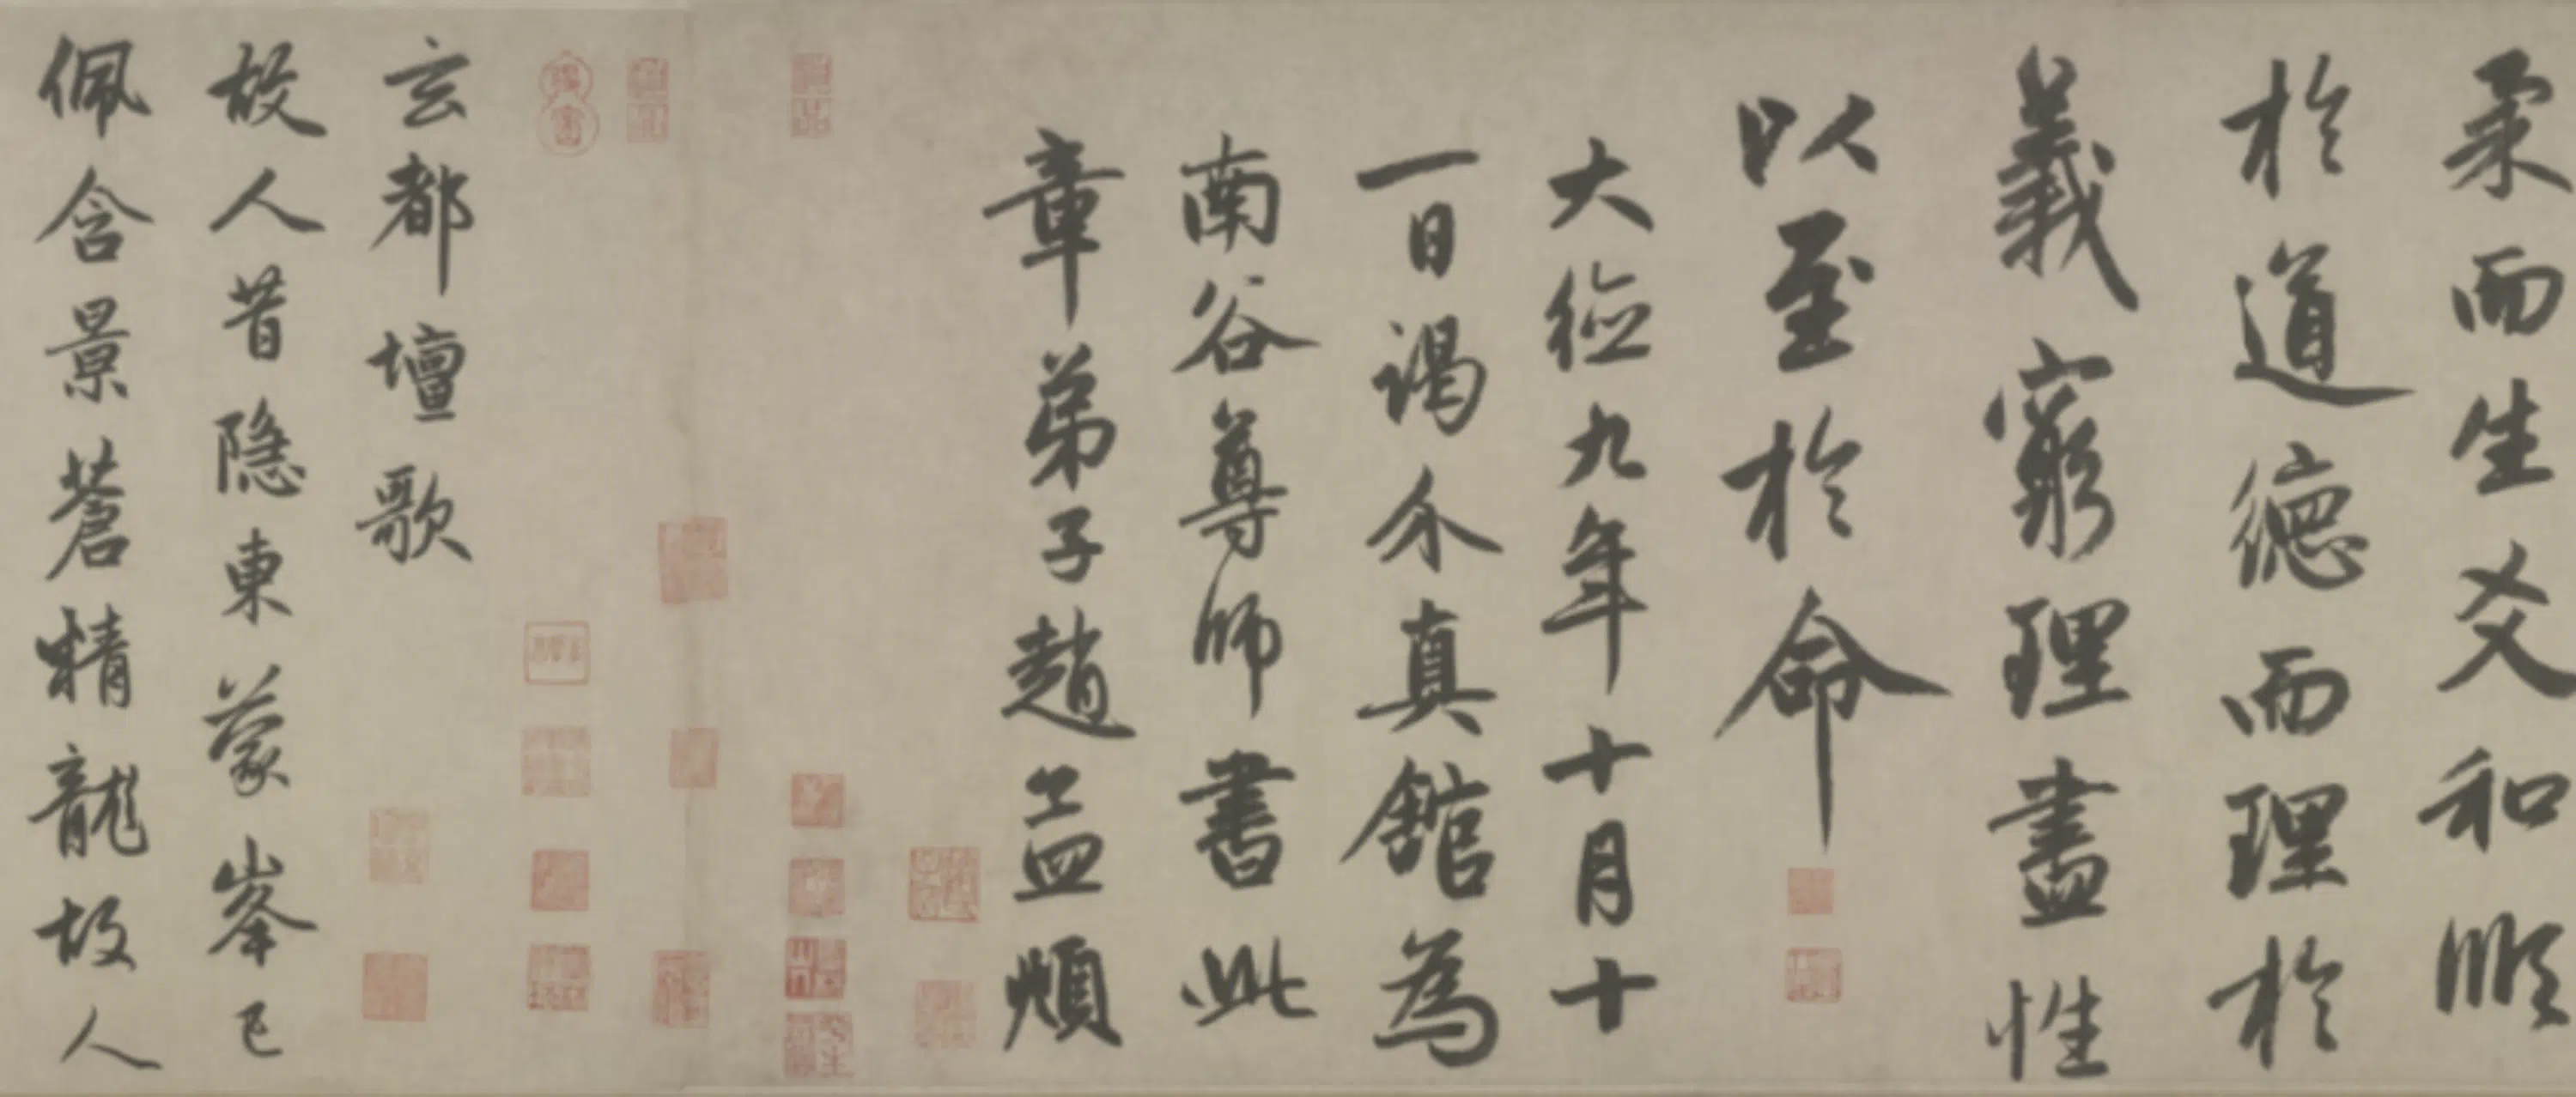 柔而生爻和順
於道德而理於
義窮理盡性
以至於命
大德九年十月十
一日謁介真館為
南谷尊師書此
章弟子趙孟頫
玄都壇歌
故人昔隱東蒙峯已
佩含景蒼精龍故人